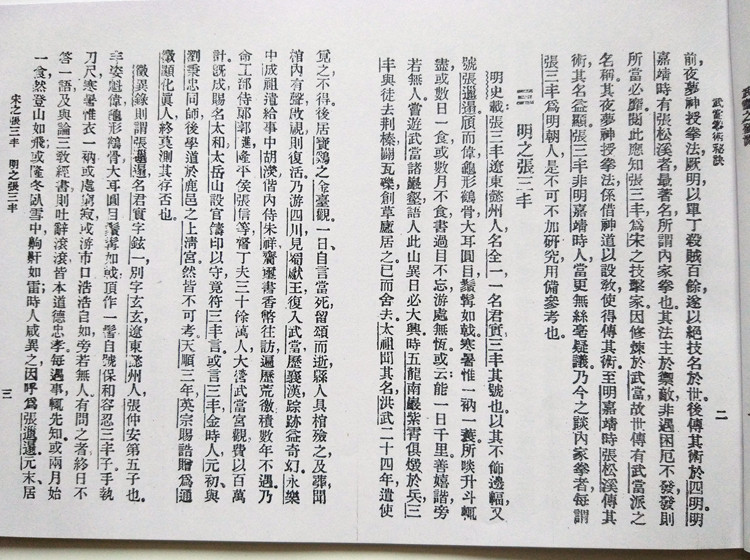 武當拳術秘訣
二
前夜夢神授拳法厥明以單丁殺賊百餘遂以絕技名於世後傳其術於四明明
嘉靖時有張松溪者最著名所謂內家拳也其法主於禦敵非遇困厄不發發則
所當必靡閱此應知張三丰爲宋之技擊家因修煉於武當故世傳有武當派之
名稱其夜夢神授拳法係借神道以設教使得傳其術至明嘉靖時張松溪傳其
術其名益顯張三丰非明嘉靖時人當更無絲毫疑議乃今之談內家拳者每謂
張三丰爲明朝人是不可不加研究用備參考也
三 明之張三丰
明史載張三丰遼東懿州人名全一一名君實三丰其號也以其不飾邊幅又
號張邋遢頎而偉龜形鶴骨大耳圓目鬚髯如戟寒暑惟一衲一蓑所啖升斗輒
盡或數日一食或數月不食書過目不忘游處無恆或云能一日千里善嬉諧旁
若無人嘗遊武當諸巖壑語人此山異日必大興時五龍南巖紫霄俱燬於兵三
丰與徒去荊榛闢瓦礫創草廬居之已而舍去太祖聞其名洪武二十四年遣使
覓之不得後居寶鷄之金臺觀一日自言當死留頌而逝縣人具棺殮之及葬聞
棺內有聲啟視則復活乃游四川見蜀獻王復入武當歷襄漢踪跡益奇幻永樂
中成祖遣給事中胡濙偕內侍朱祥齎璽書香幣往訪遍歷荒徼積數年不遇乃
命工部侍郎郭璡隆平侯張信等督丁夫三十餘萬人大營武當宮觀費以百萬
計既成賜名太和太岳山設官鑄印以守竟符三丰言或言三丰金時人元初與
劉秉忠同師後學道於鹿邑之上清宮然皆不可考天順三年英宗賜誥贈爲通
微顯化眞人終莫測其存否也
徵異錄則謂張邋遢名君實字鉉一別字玄玄遼東懿州人張仲安第五子也
丰姿魁偉龜形鶴骨大耳圓目鬚髯如戟頂作一髻自號保和容忍三丰子手執
刀尺寒暑惟衣一衲或處窮寂或游市口浩浩自如旁若無人有問之者終日不
答一語及與論三敎經書則吐辭滾滾皆本道德忠孝每遇事輒先知或兩月始
一食然登山如飛或隆冬臥雪中齁鼾如雷時人咸異之因呼爲張邋遢元末居
宋之張三丰 明之張三丰
三